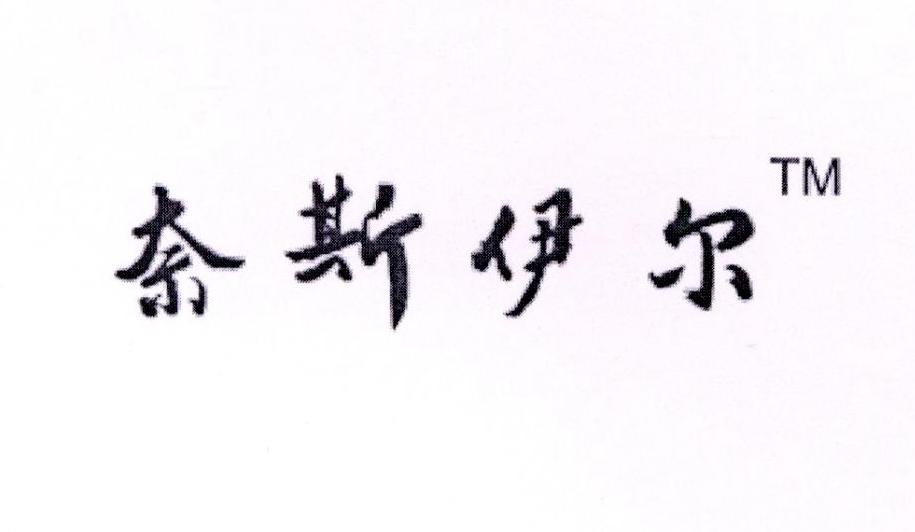 奈斯伊尔™